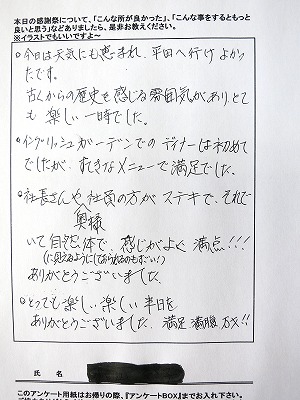 本日の感謝祭について、「こんな所が良かった」、「こんな事をするともっと
良いと思う」などありましたら、是非お教えください。
※イラストでもいいですよ～
○今日は天気にも恵まれ、平田へ行けよかっ
たです。
古くからの歴史を感じる雰囲気があり、とて
も楽しい一時でした。
○イングリッシュガーデンでのディナーは初めて
でしたが、すてきなメニューで満足でした。
○社長さんや社員の方がステキで、それで
奥様
いて自然体で、感じがよく満点!!!
(に見えるようにしておられるのもすごい!)
ありがとうございました。
○とっても楽しい楽しい半日を
ありがとうございました。満足満腹万才!!
氏 名
このアンケート用紙はお帰りの際、『アンケートBOX』までお入れ下さい。